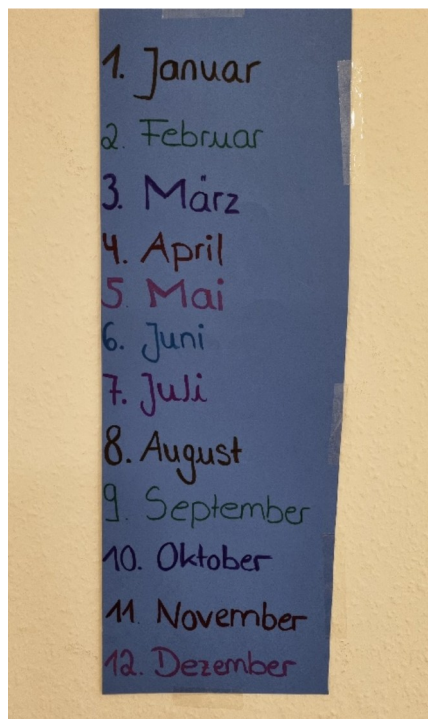 1. Januar
2. Februar
3. März
4. April
5. Mai
6. Juni
7. Juli
8. August
9. September
10. Oktober
11. November
12. Dezember